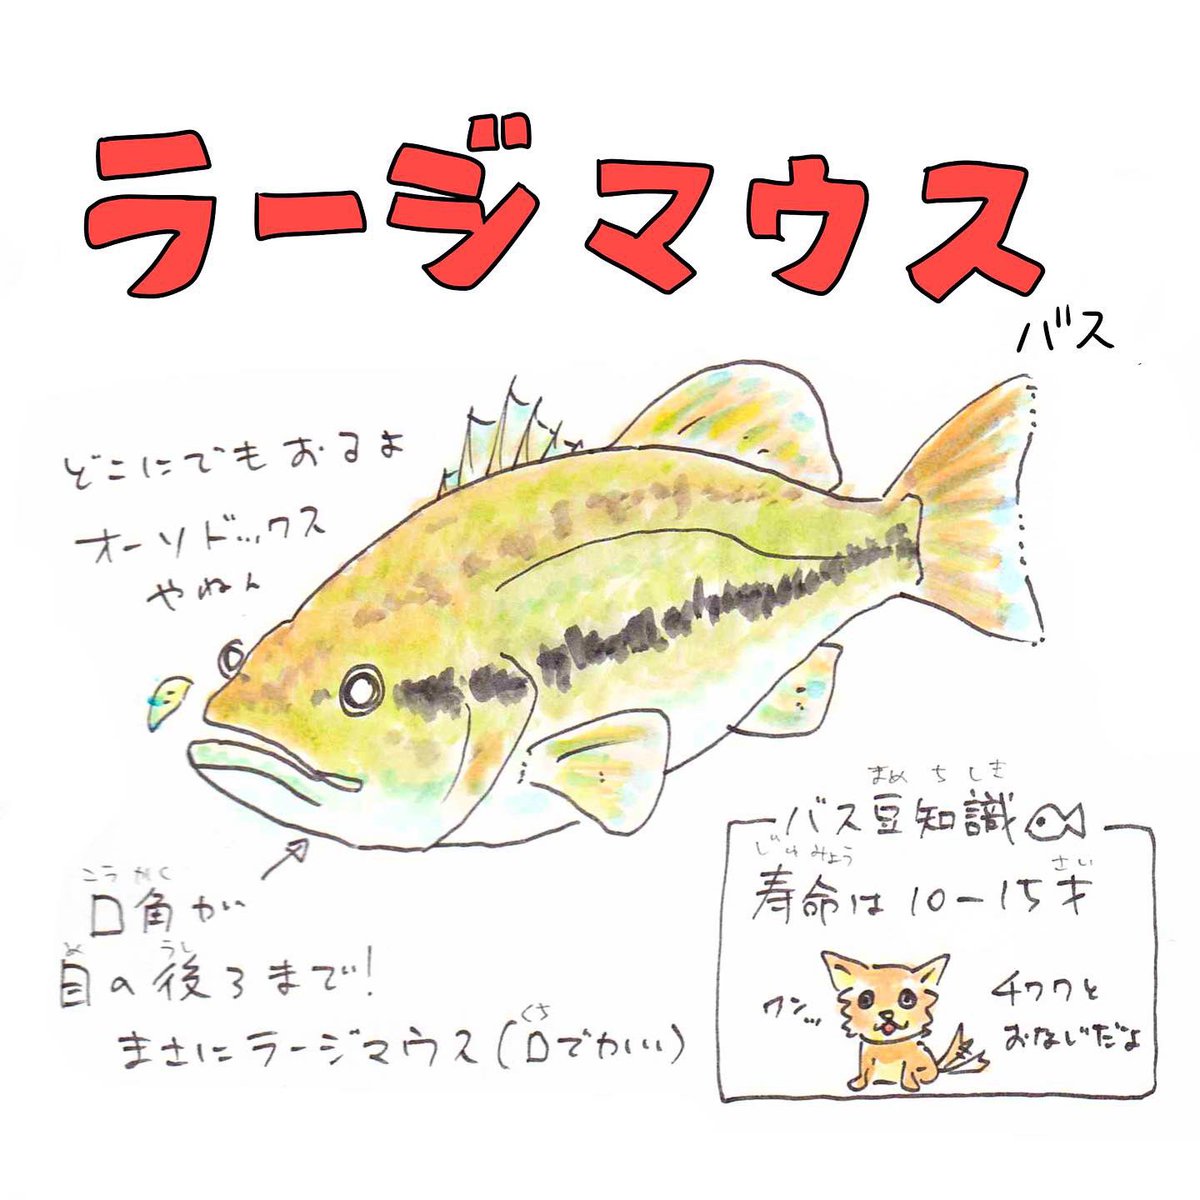 ラージマウス
バス
どこにでもおるよ
オーソドックス
やねん
こうかく
口角が
め うし
目の後ろまで!
くち
まさにラージマウス(口でかい)
まめちしき
バス豆知識
じゅみょう さい
寿命は10-15才
ワン…
チワワと
おなじだよ